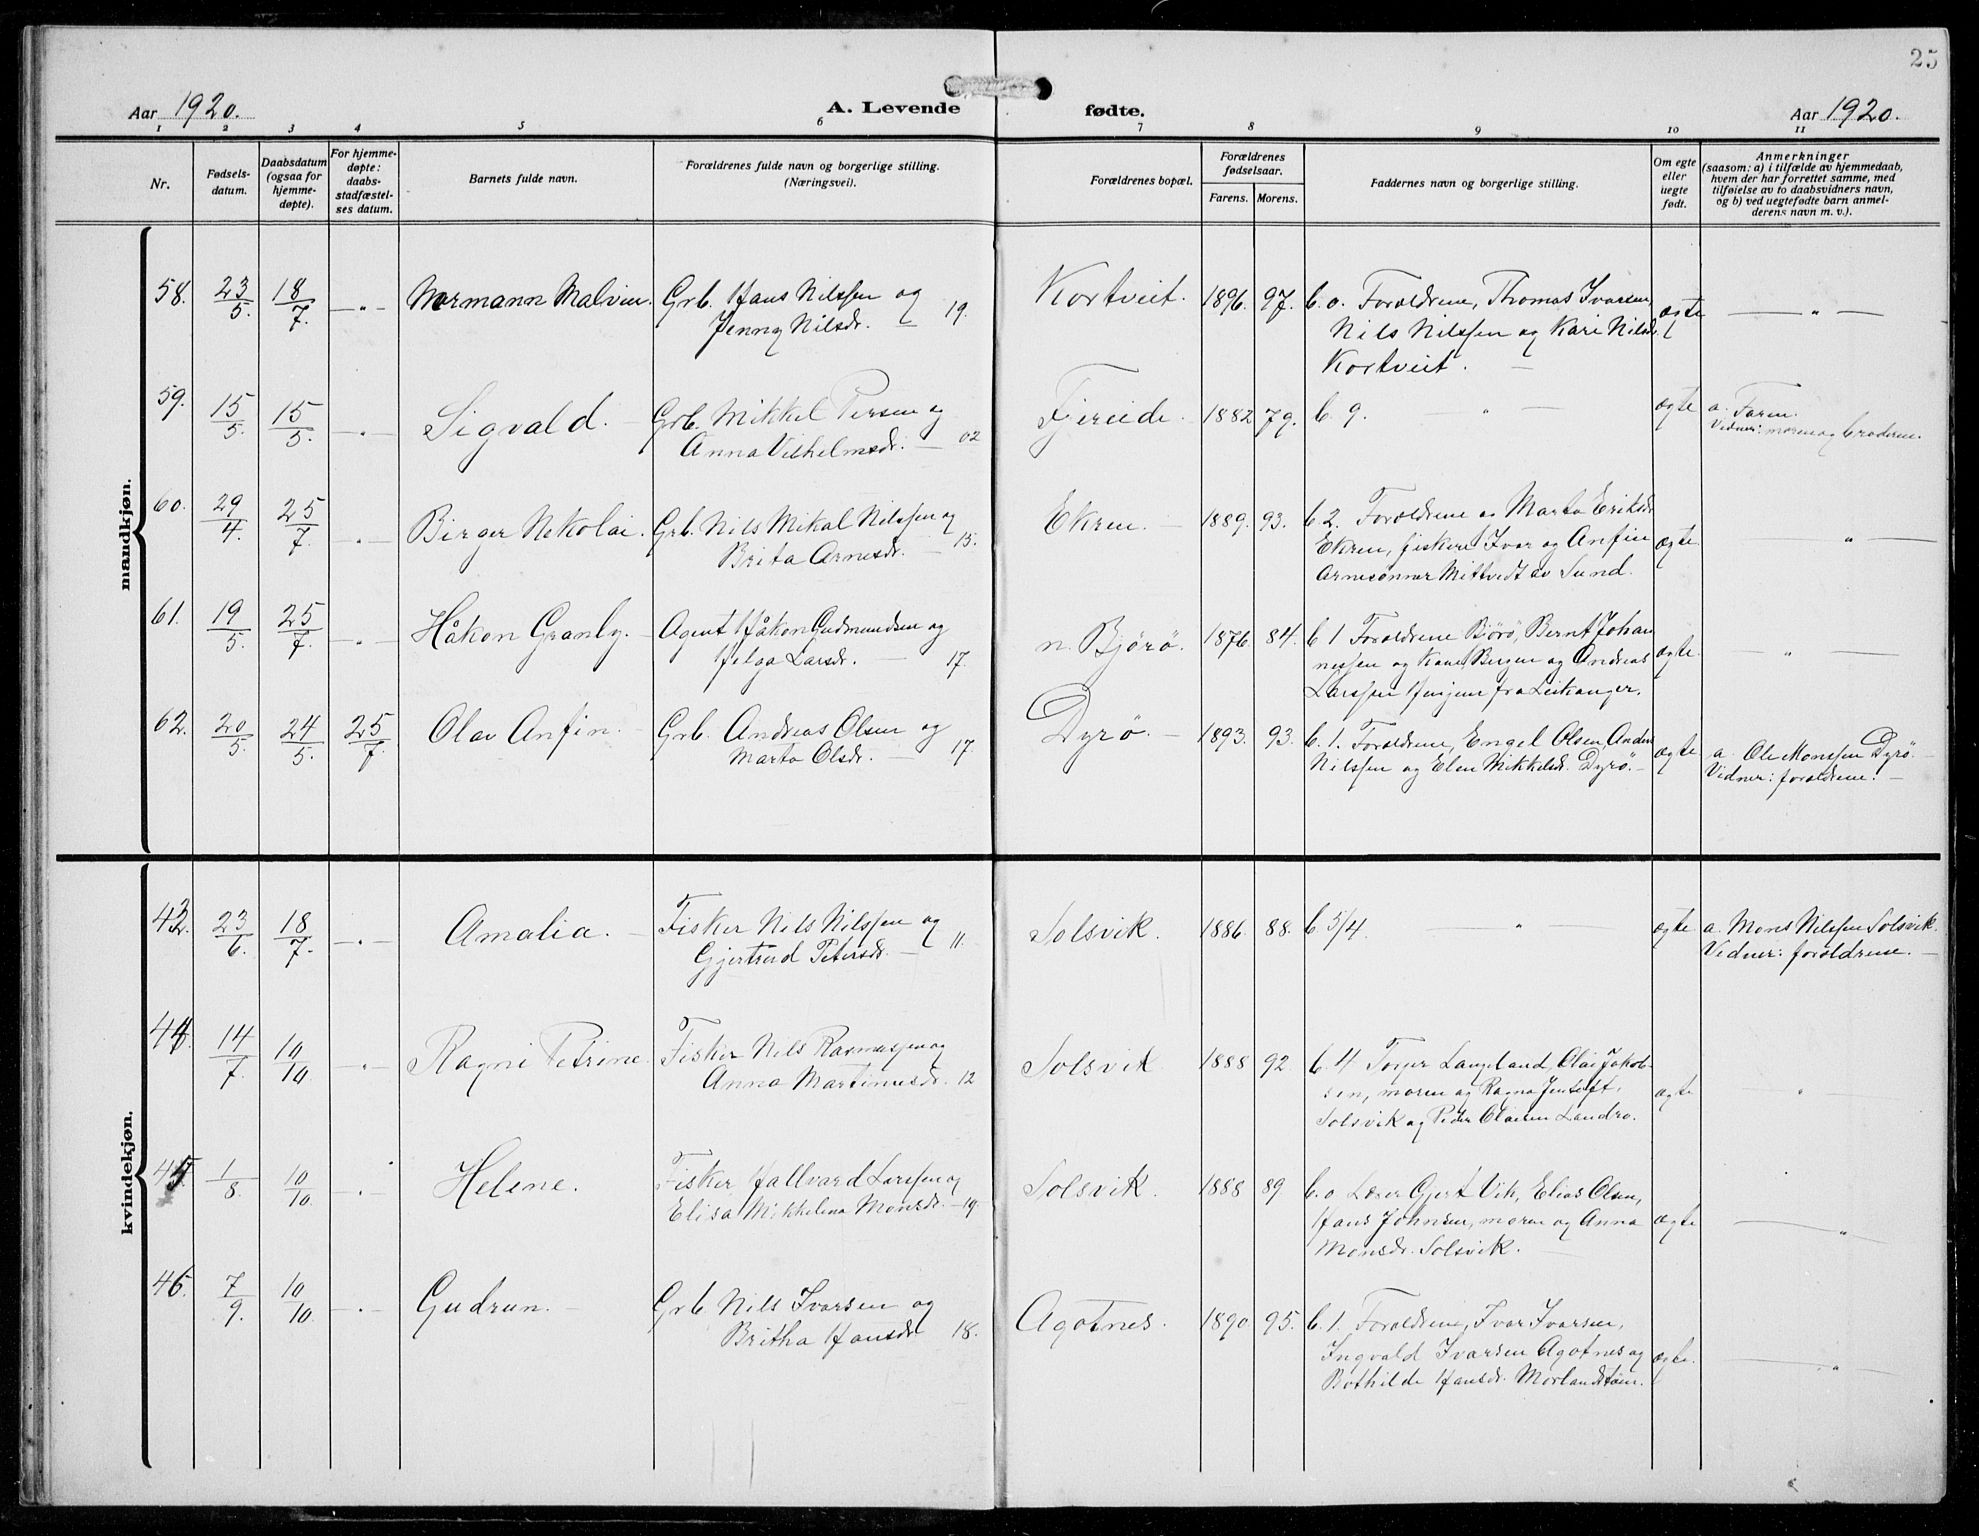 25
Aar 1920.
A. Levende fødte.
Aar 1920.
1 2 3 4 5 6 7 8 9 10 11
Nr.
Fødsels-
datum.
Daabsdatum
(ogsaa for
hjemme-
døpte).
For hjemme-
døpte:
daabs-
stadfæstel-
ses datum.
Barnets fulde navn.
Forældrenes fulde navn og borgerlige stilling.
(Næringsvei).
Forældrenes bopæl.
Forældrenes
fødselsaar.
Farens. Morens.
Faddernes navn og borgerlige stilling.
Om egte
eller
uegte
født.
Anmerkninger
(saasom: a) i tilfælde av hjemmedaab,
hvem der har forrettet samme, med
tilføielse av to daabsvidners navn,
og b) ved uegtefødte barn anmel-
derens navn m. v.).
mandkjøn.
58. 23/5. 18/7. -"- Mormann Malvin. Grb. Hans Nilssen og
Jenny Nilsdr. — 19.
Kortveit. 1896. 97. b. o. Forældrene, Thomas Ivarsen,
Nils Nilssen og Kari Nilsd.
Kortveit. —
ægte — " —
59. 15/5. 15/5. -"- Sigvald. — Grb. Mikkel Persen og
Anna Vilhelmsdr. — 02
Fjereide. 1882 79. b. 9. " —
ægte a. Faren.
Vidner: moren og broderen.
60. 29/4. 25/7. -"- Birger Nikolai. Grb. Nils Mikal Nilssen og
Brita Arnesdr. — 15.
Ekren. — 1889. 93. b. 2. Forældrene og Marta Eriksdr
Ekren, fiskere Ivar og Anfin
Arnesønner Mittvedt av Sund.
ægte. " —
61. 19/5. 25/7. -"- Håkon Granly. — Agent Håkon Gudmundsen og
Helga Larsdr. — 17.
n. Bjørø. 1876. 84. b. 1 Forældrene Bjørø, Bernt Johan
nessen og Bergen og Andreas
Larssen Henjum fra Leikanger.
ægte. — " —
62. 20/5. 24/5. 25/7. Olav Anfin. — Grb. Andreas Olsen og
Marta Olsdr. — 17.
Dyrø. — 1893. 93. b. 1. Forældrene, Engel Olsen, Anders
Nilssen og Elen Mikkelsdr. Dyrø. —
ægte a. Ole Monssen Dyrø.
Vidner: forældrene. —
kvindekjøn.
43. 23/6. 18/7. -"- Amalia. — Fisker Nils Nilssen og
Gjertrud Petersdr. — 11.
Solsvik. 1886. 88. b. 5/4. — " —
ægte. a. Mons Nilssen Solsvik.
Vidner: forældrene. —
44. 14/7. 10/10. -"- Ragni Petrine. Fisker Nils Rasmussen og
Anna Martinusdr. 12
Solsvik 1888 92. b. 4 Torger Langeland, Olai Jakob-
sen, moren og Ragna Jentoft,
Solsvik og Peder Olaisen Landro.
ægte "
45. 1/8. 10/10. -"- Helene. Fisker Hallvard Larssen og
Elisa Mikkelina Monsdr. — 19.
Solsvik. 1888 89 b. o Læser Gjert Vik, Elias Olsen,
Hans Johnsen, moren og Anna
Monsdr. Solsvik. —
ægte — " —
46. 7/9. 10/10. -"- Gudrun. — Grb. Nils Ivarsen og
Britha Hansdr 18.
Agotnes. 1890 95. b. 1. Forældrene, Ivar Ivarsen,
Ingvald Ivarsen Agotnes og
Bothilde Hansdr. Morlandstøen.
ægte. — " —